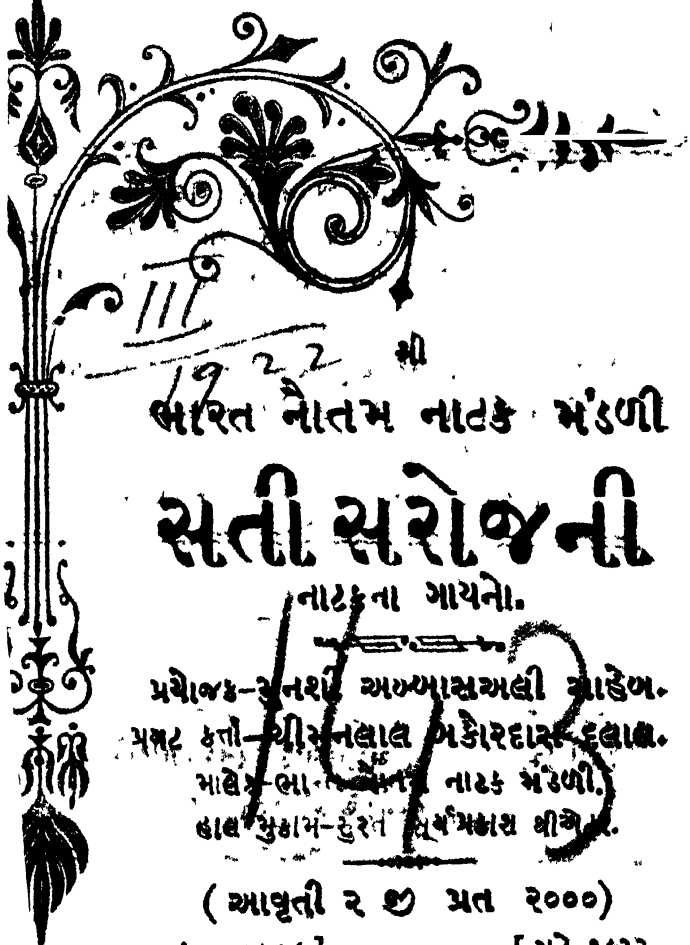 III
1922
શ્રી
ભારત નૌતમ નાટક મંડળી
સતી સરોજની
નાટકના ગાયનો.
143
પ્રયોજક–મુનશી અબ્બાસઅલી સાહેબ.
પ્રગટ કર્તા–ચીમનલાલ ભકોરદાસ દલાલ.
માલેક–ભારત નૌતમ નાટક મંડળી.
હાલ મુકામ–સુરત સૂર્યપ્રકાશ થીએટર.
(આવૃતી ૨ જી પ્રત ૨૦૦૦)